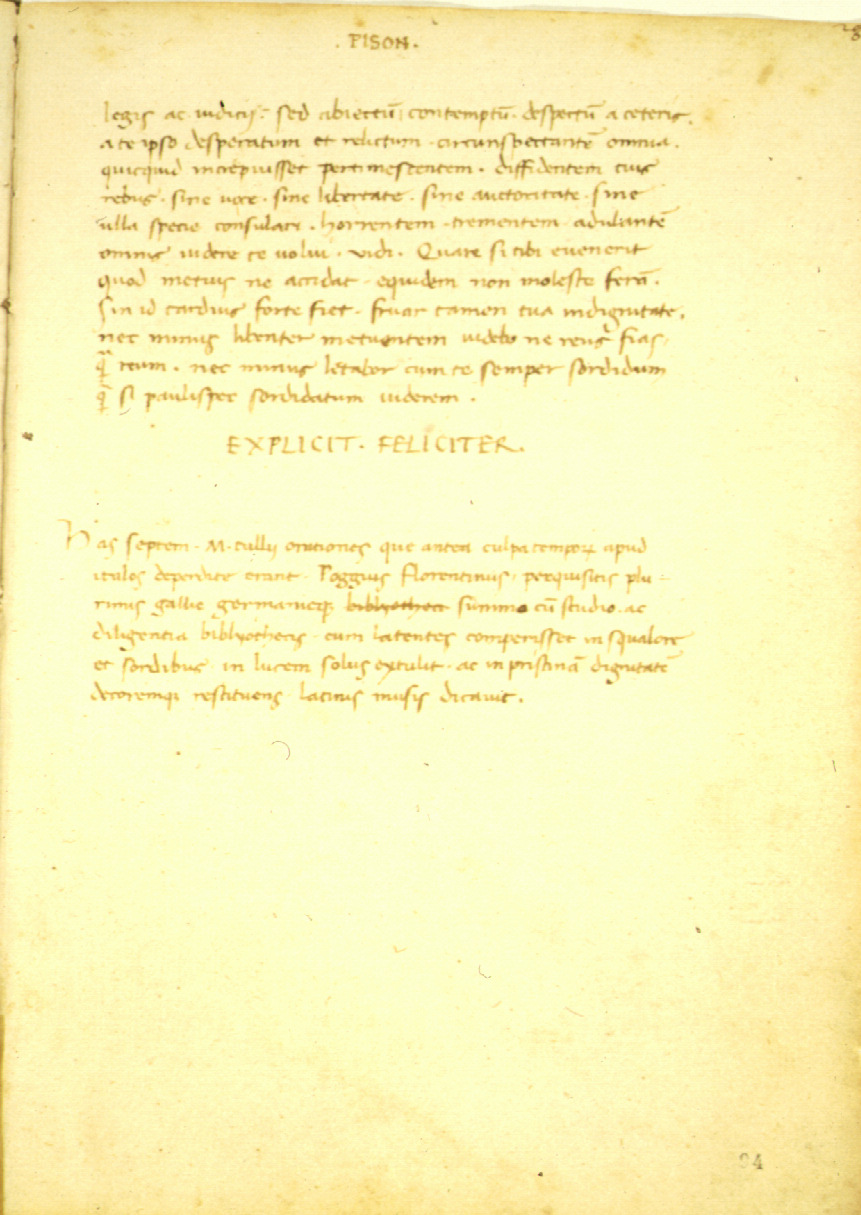 . PISON .
legis ac iudicij : sed abiectū contemptū . despectū a ceteris .
a te ipso desperatum et relictum . circunspectantē omnia .
quicquid increpuisset pertimescentem . diffidentem tuis
rebus . sine voce . sine libertate . sine auctoritate . sine
ulla specie consulari . horrentem . trementem . adulantē
omnis videre te volui . vidi . Quare si tibi evenerit
quod metuis ne accidat . equidem non moleste ferā .
Sin id tardius forte fiet . fruar tamen tua indignitate .
nec minus libenter metuentem videbo ne reus fias
quā reum . nec minus letabor cum te semper sordidum
quā si paulisper sordidatum viderem .
EXPLICIT . FELICITER .
Has septem . M . tullij orationes que antea culpa temporꝝ apud
italos deperdite erant . Poggius florentinus . perquisitis plu=
rimis gallie germanieqꝫ bibliothecis summo cū studio . ac
diligentia bibliothecis . cum latentes comperisset in squalore
et sordibus . in lucem solus extulit . ac in pristinā dignitatē
decoremqꝫ restituens . latinis musis dicavit .
94